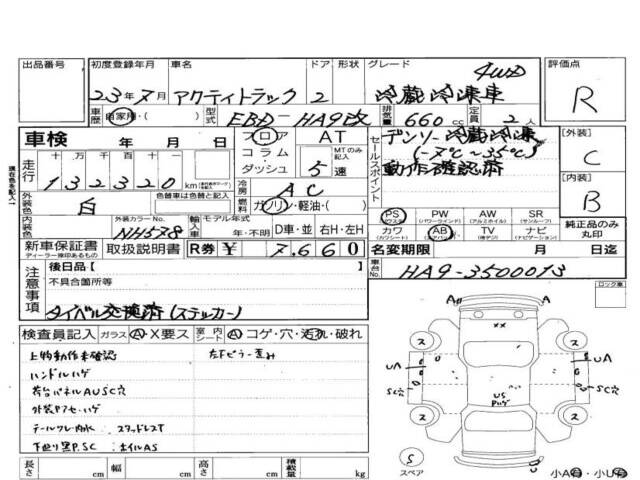 出品番号 初度登録年月 車名 ドア 形状 グレード 評価点
23年7月 アクティトラック 2 冷蔵冷凍車 4WD R
車歴 自家用・( ) 型式 EBD-HA9改 排気量 660cc 定員 2人
車検 年 月 日 フロア AT
コラム MTのみ記入
ダッシュ 5速
現在色を記入
走行 十万 万 千 百 十
132320km
冷房 AC
燃料 ガソリン・軽油・( )
セールスポイント
デンソー冷蔵冷凍
(-7℃~35℃)
動作確認済
[外装]
C
[内装]
B
外装色 白 色替車は色替と記入
内装色 外装カラーNo. NH578 輸入車 モデル年式 年・不明 D車・並 右H・左H
PS PW AW SR
(パワステ) (パワーウインド) (アルミホイル) (サンルーフ)
カワ AB TV ナビ
(カワシート) (エアバック) (ナビゲーション)
純正品のみ丸印
新車保証書 取扱説明書 R券 ¥ 7,660
ディーラー捺印あるもの
名変期限 月 日迄
注意事項
後日品【 】
不具合箇所等
タイベル交換済(ステッカー)
車台No. HA9-3500013
ロック車
検査員記入 ガラス A・X要ス 室内シート A コゲ・穴・汚れ・破れ
上物動作未確認 左Fピラー歪み
ハンドルハゲ
荷台パネルAUSC穴
外装ヤケセ・ハゲ
テールワレ内水 スタッドレスT
下廻り黒P.SC ホイルAS
長さ cm 幅 cm 高さ cm 積載量 kg
A A
××
ス ス
UA UA
SC穴
US
Pハゲ
ス ス
S
スペア
小A有・小U有